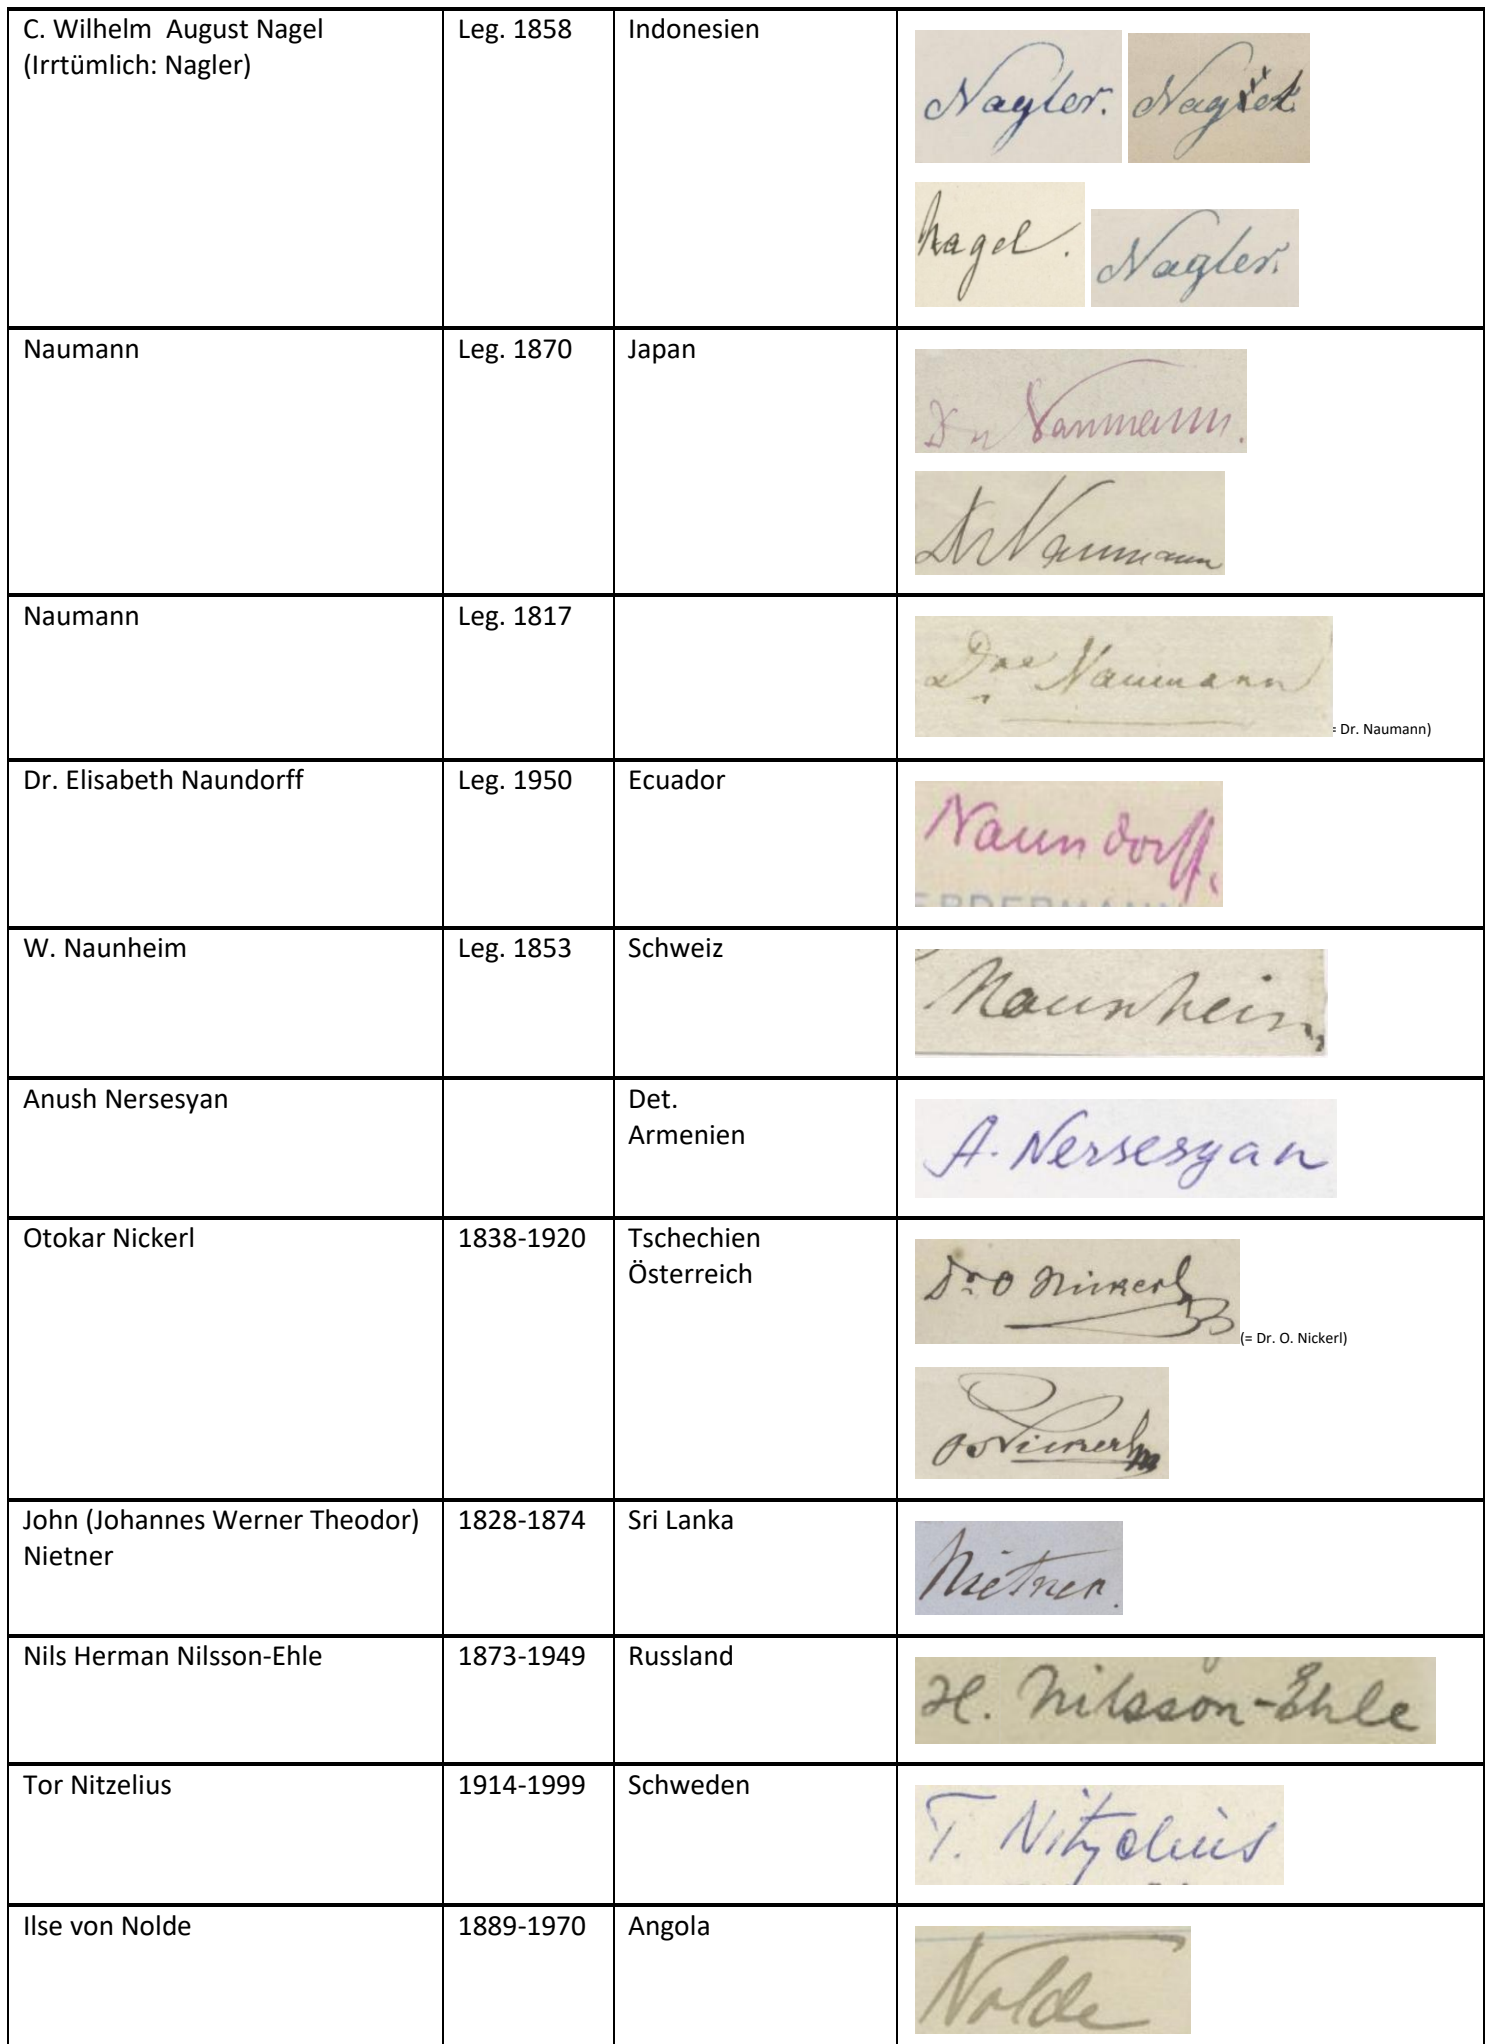 C. Wilhelm  August Nagel Leg. 1858 Indonesien
(Irrtümlich: Nagler)
Nagler. Nagel.
Nagel. Nagler.
Naumann Leg. 1870 Japan
Dr Naumann.
Dr Naumann
Naumann Leg. 1817
Naumann
= Dr. Naumann)
Dr. Elisabeth Naundorff Leg. 1950 Ecuador
Naundorff.
W. Naunheim Leg. 1853 Schweiz
Naunheim
Anush Nersesyan Det.
Armenien
A. Nersesyan
Otokar Nickerl 1838-1920 Tschechien
Österreich
Dr. O Nickerl
(= Dr. O. Nickerl)
O Nickerl
John (Johannes Werner Theodor) 1828-1874 Sri Lanka
Nietner
Nietner.
Nils Herman Nilsson-Ehle 1873-1949 Russland
H. Nilsson-Ehle
Tor Nitzelius 1914-1999 Schweden
T. Nitzelius
Ilse von Nolde 1889-1970 Angola
Nolde